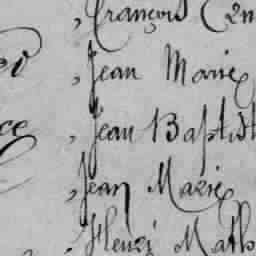 , François
, Jean Marie
, Jean Baptist
, Jean Marie
, Henri Math